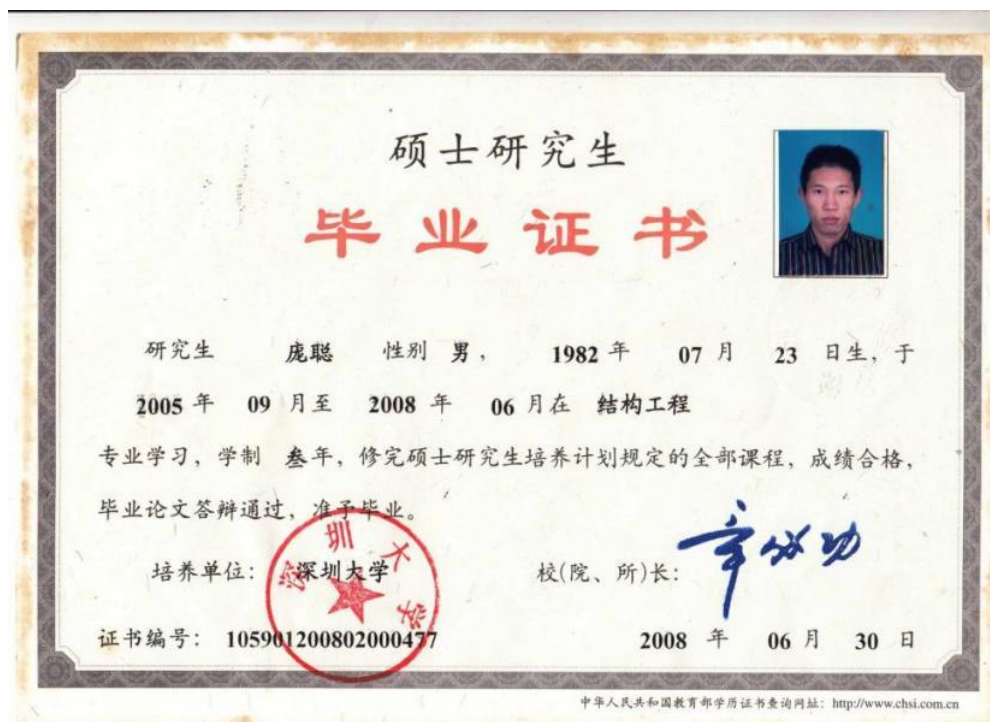 硕士研究生
毕业证书
研究生 庞聪 性别 男， 1982 年 07 月 23 日生，于
2005 年 09 月至 2008 年 06 月在 结构工程
专业学习，学制 叁年，修完硕士研究生培养计划规定的全部课程，成绩合格，
毕业论文答辩通过，准予毕业。
培养单位： 深圳大学 校(院、所)长： 章必功
深圳大学
证书编号： 105901200802000477 2008 年 06 月 30 日
中华人民共和国教育部学历证书查询网址：http://www.chsi.com.cn